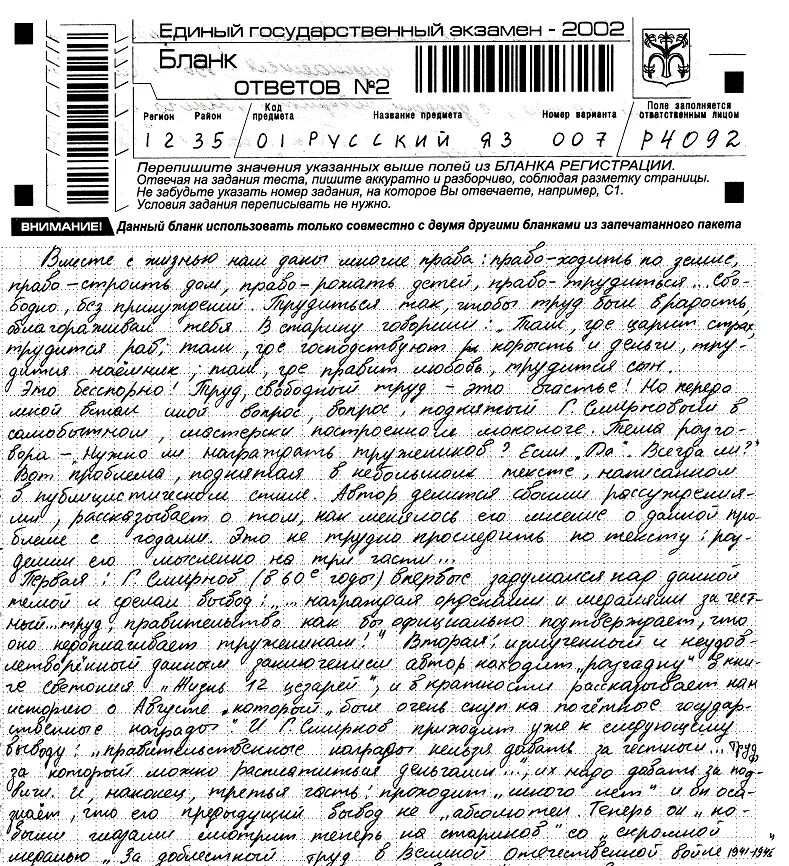 Единый государственный экзамен - 2002
Бланк
ответов №2
Регион Район Код предмета Название предмета Номер варианта Поле заполняется ответственным лицом
12 35 01 РУССКИЙ ЯЗ 007 Р4092
Перепишите значения указанных выше полей из БЛАНКА РЕГИСТРАЦИИ.
Отвечая на задания теста, пишите аккуратно и разборчиво, соблюдая разметку страницы.
Не забудьте указать номер задания, на которое Вы отвечаете, например, С1.
Условия задания переписывать не нужно.
ВНИМАНИЕ! Данный бланк использовать только совместно с двумя другими бланками из запечатанного пакета
Вместе с жизнью нам даны многие права: право-ходить по земле,
право-строить дом, право-рожать детей, право-трудиться... Сво-
бодно, без принуждений. Трудиться так, чтобы труд был в радость,
облагораживал тебя. В старину говорили: „Там, где царит страх,
трудится раб; там, где господствуют корысть и деньги, тру-
дится наёмник; там, где правит любовь, трудится сын.
Это бесспорно! Труд, свободный труд – это счастье! Но передо
мной встал иной вопрос, вопрос, поднятый Г. Смирновым в
самобытном, мастерски построенном монологе. Тема разго-
вора – „Нужно ли награждать тружеников? Если „Да". Всегда ли?"
Вот проблема, поднятая в небольшом тексте, написанном
в публицистическом стиле. Автор делится своими рассуждения-
ми, рассказывает о том, как менялось его мнение о данной про-
блеме с годами. Это не трудно проследить по тексту: раз-
делим его мысленно на три части...
Первая: Г. Смирнов (в 60е годы) впервые задумался над данной
темой и сделал вывод: „...награждая орденами и медалями за чест-
ный...труд, правительство как бы официально подтверждает, что
оно недоплачивает труженикам!" Вторая: измученный и неудов-
летворённый данным заключением автор находит „разгадку" в кни-
ге Светония „Жизнь 12 цезарей", и в кратности рассказывает нам
историю о Августе „который „был очень скуп на почётные государ-
ственные награды". И Г. Смирнов приходит уже к следующему
выводу: „правительственные награды нельзя давать за честный... труд,
за который можно расплатиться деньгами...", их надо давать за под-
виги. И, наконец, третья часть: проходит „много лет" и он осо-
знаёт, что его предыдущий вывод не „абсолютен. Теперь он „но-
выми глазами смотрит теперь на стариков" со „скромной
медалью „За доблестный труд в Великой отечественной войне 1941-1945"